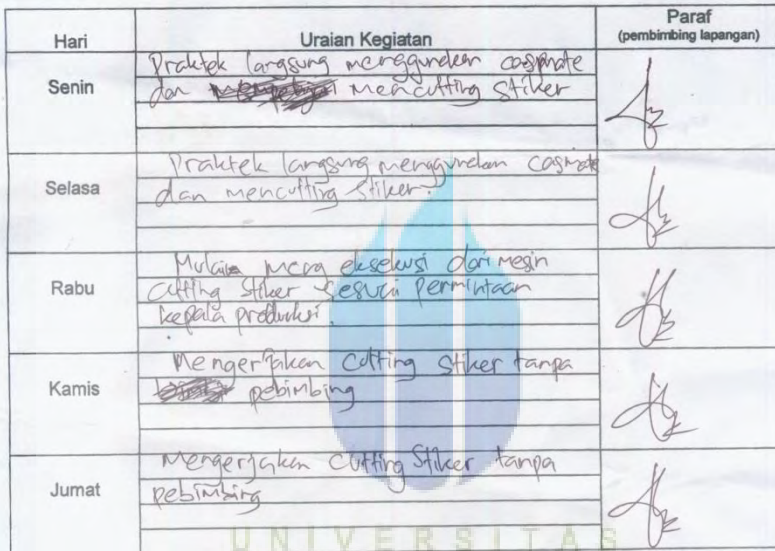 Hari Uraian Kegiatan Paraf
(pembimbing lapangan)
Senin
Praktek langsung menggunakan
dan mencutting Stiker
Selasa
Praktek langsung menggunakan
dan mencutting Stiker.
Rabu
Mulai meng eksekusi dari mesin
Cutting Stiker sesuai permintaan
kepala produksi.
Kamis
Mengerjakan Cutting Stiker tanpa
pebimbing
Jumat
Mengerjakan Cutting Stiker tanpa
pebimbing
UNIVERSITAS